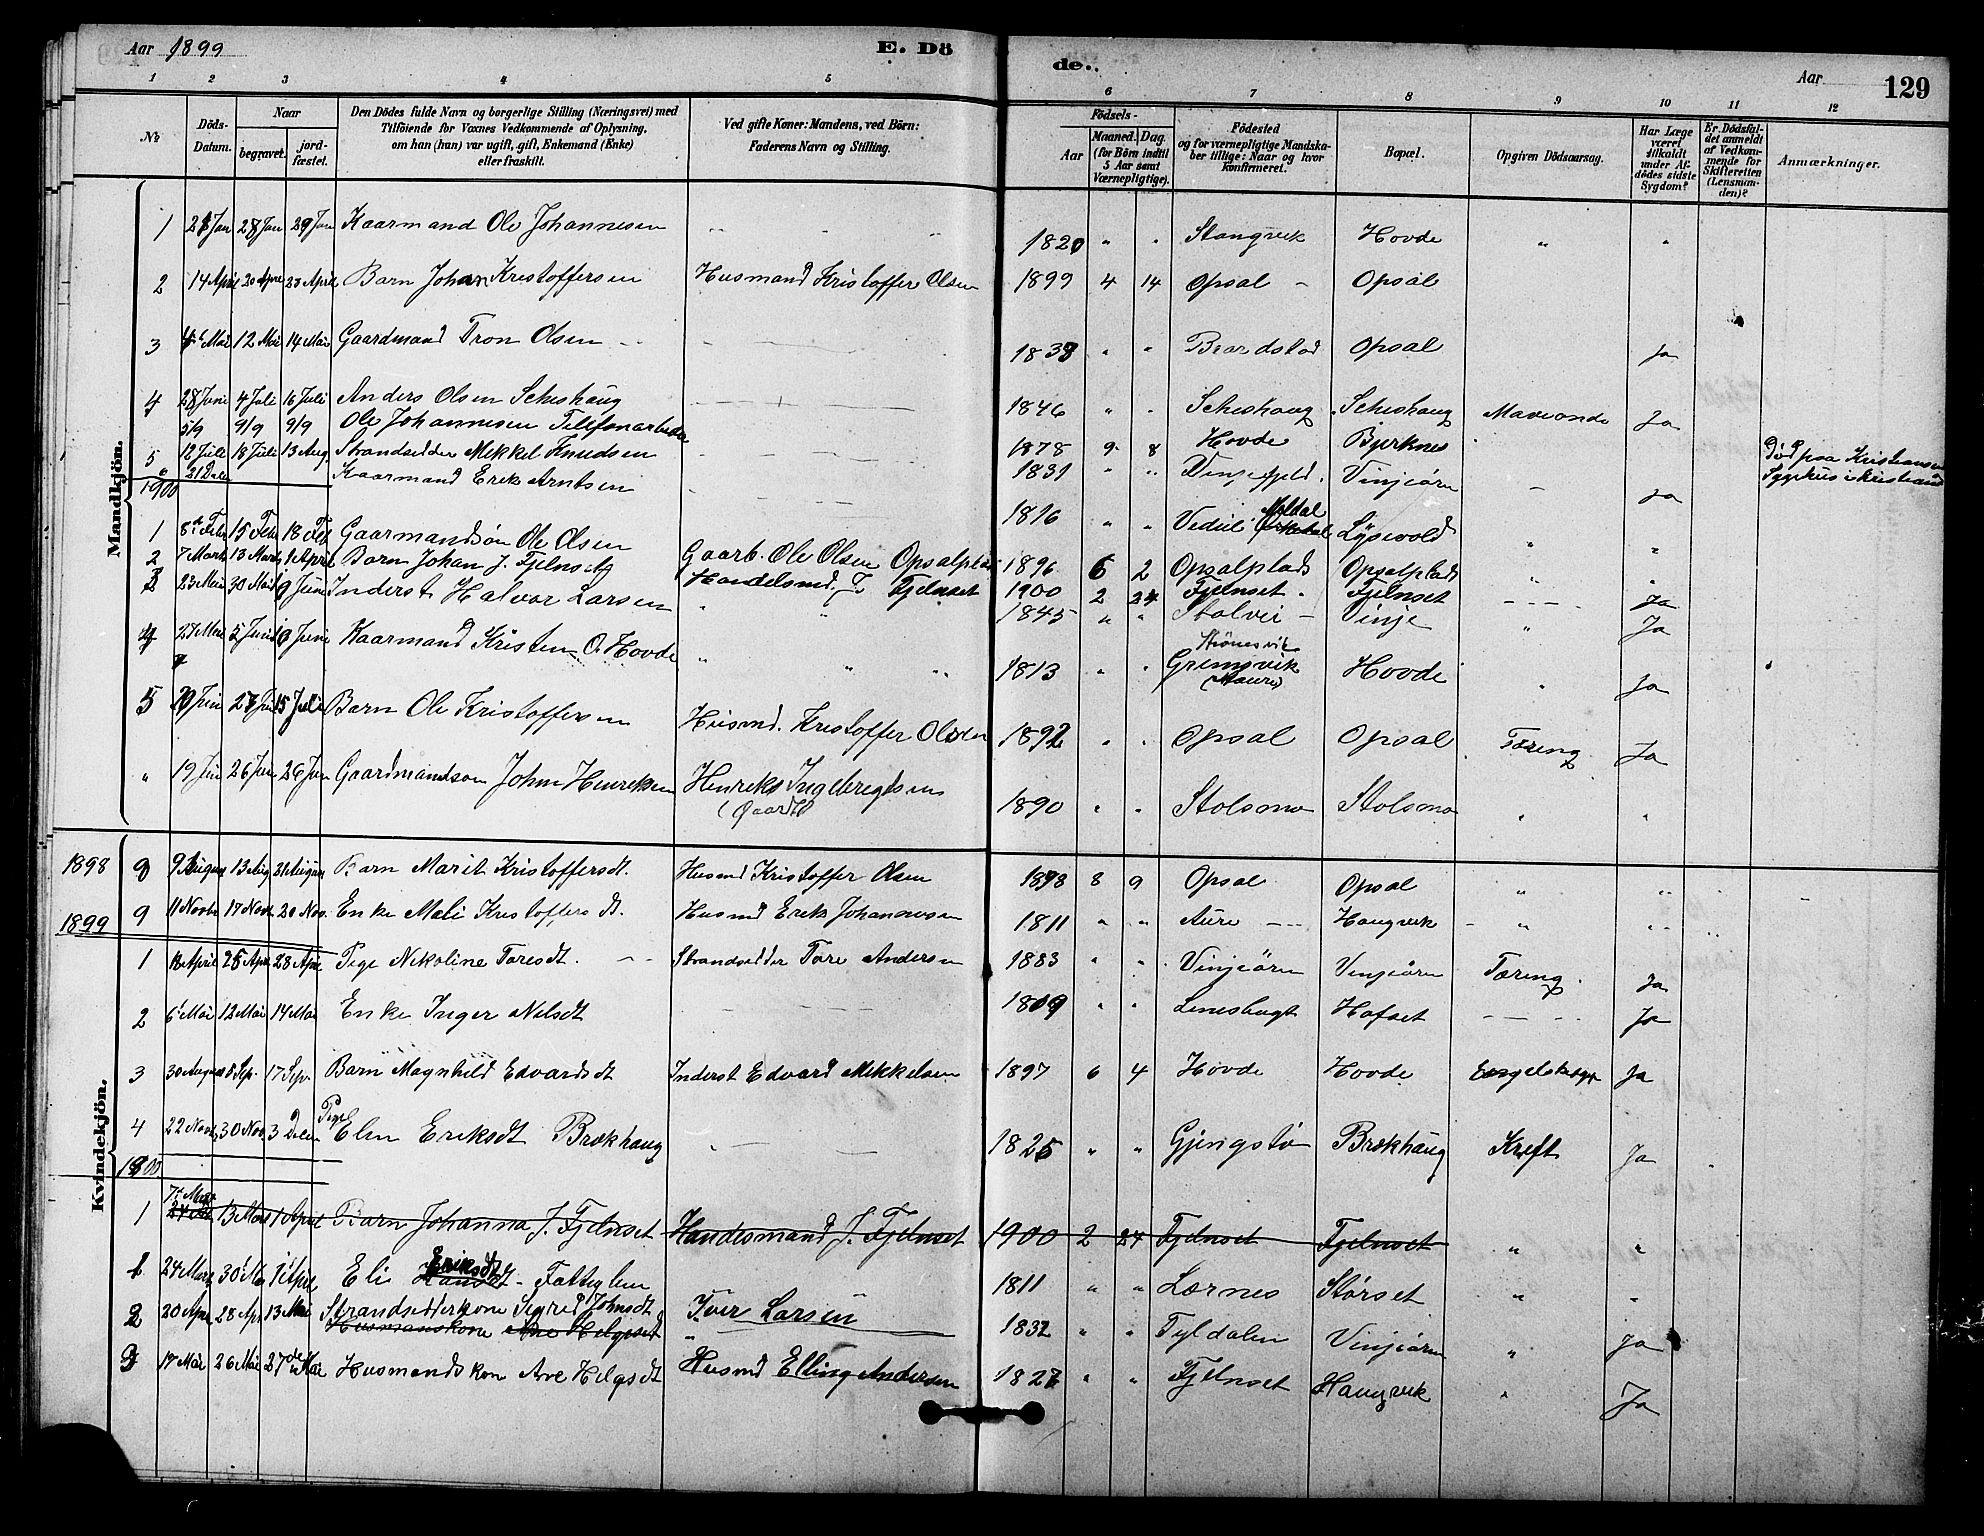 Aar 1899
E. Dö
de..
Aar
129
1 2 3 4 5 6 7 8 9 10 11 12
No
Döds-Datum.
Naar
begravet.
jord-fæstet.
Den Dödes fulde Navn og borgerlige Stilling (Næringsvei) med
Tilföiende for Voxnes Vedkommende af Oplysning,
om han (hun) var ugift, gift, Enkemand (Enke)
eller fraskilt.
Ved gifte Koner: Mandens, ved Börn:
Faderens Navn og Stilling.
Födsels-
Aar
Maaned. Dag.
(for Börn indtil
5 Aar samt
Værnepligtige).
Födested
og for værnepligtige Mandska-
ber tillige: Naar og hvor
konfirmeret.
Bopæl.
Opgiven Dödsaarsag.
Har Læge
været
tilkaldt
under Af-
dödes sidste
Sygdom?
Er Dödsfal-
det anmeldt
af Vedkom-
mende for
Skifteretten
(Lensman-
den)?
Anmærkninger.
Mandkjön.
1 Jan 28 Jan 29 Jan Kaarmand Ole Johannesen 1820 " " Stangvik Hovde " "
2 14 April 20 Apr 23 April Barn Johan Kristoffersen Husmand Kristoffer Olsen 1899 4 14 Opsal - Opsal
3 Mai 12 Mai 14 Mai Gaardmand Tron Olsen 1838 " " Brandstad Opsal Ja
4 28 Juni 4 Juli 16 Juli Anders Olsen Scheshaug 1846 " " Scheshaug Scheshaug Ja
5/9 9/9 9/9 Ole Johannesen Telefonarbeider 1878 9 8 Hovde Bjerknes Död paa Kristiansunds
5 12 Juli 18 Juli 13 Aug. Strandsidder Mikkel Knudsen 1831 " " Vinjefjeld. Vinjeörn Ja Sygehus i Kristiansund
21 Kaarmand Erik Arntsen
1900
1 8de Febr 15 Febr 18 Feb Gaarmandsön Ole Olsen 1896 " " Lysevold " "
2 7 Marts 13 Marts 1 April Barn Johan J. Fjelnset Gaarb. Ole Olsen Opsalplads 1896 6 2 Opsalplads Opsalplads "
3 23 Mai 30 Mai 9 Juni Inderst Halvor Larsen Handelsmd. J. Fjelnset 1900 2 24 Fjelnset Fjelnset Ja
1845 " " Stolvei - Vinje " Ja
4 27 Mai 5 Juni Juni Kaarmand Kristen O. Hovde " " " 1813 " " Grimsvik (Aure) Hovde " Ja
5 Juni Juni 15 Juli Barn Ole Kristoffersen Husmd. Kristoffer Olsen 1892 " " Opsal Opsal Tæring Ja
" 19 Jun 26 Jun 26 Jun Gaardmandsøn John Henriksen Henrik Ingebregtsen (Gaardb) 1890 " " Stolsmo Stolsmo " "
Kvindekjön.
1898 8 9 August 13 Aug 21 August Barn Marit Kristoffersdt. Husmd Kristoffer Olsen 1898 8 9 Opsal Opsal " "
9 11 Novbr 17 Nov 20 Nov. Enke Mali Kristoffersdt. Husmd Erik Johannesen 1811 " " Aure Haugvik " "
1899
1 18 April 25 Apr 28 Apr. Pige Nikoline Toresdt. Strandsidder Tore Andersen 1883 " " Vinjeörn Vinjeörn Tæring. Ja
2 6 Mai 12 Mai 14 Mai Enke Inger Nilsdt 1809 " " Lenesbugt Hafset Ja
3 30 August 8 Sep. 17 Sep. Barn Magnhild Edvardsdt Inderst Edvard Mikkelsen 1897 6 4 Hovde Hovde Ja
4 22 Novb 30 Nov 3 Decbr Pige Elen Eriksdt Brækhaug 1825 " " Gjengstø Brækhaug Kreft Ja
1900
1 7de Mar 13 Mar 1 April Barn Johanna J. Fjelnset Handesmand J. Fjelnset 1900 2 24 Fjelnset Fjelnset " "
1 24 Marts 30 1 April Eli Eriksdt - Fattiglem 1811 " " Lærnes Størset " "
2 20 Apr 28 Apr 13 Mai Strandsidderkone Sigrid Johnsdt Iver Larsen 1832 " " Tyldalen Vinjeörn " Ja
Husmanskone Ane Helgesdt "
3 17 Mai 26 Mai 27de Mai Husmandskon Ane Helgsdt Husmd Elling Andersen 1827 " " Fjelnset Haugvik " Ja